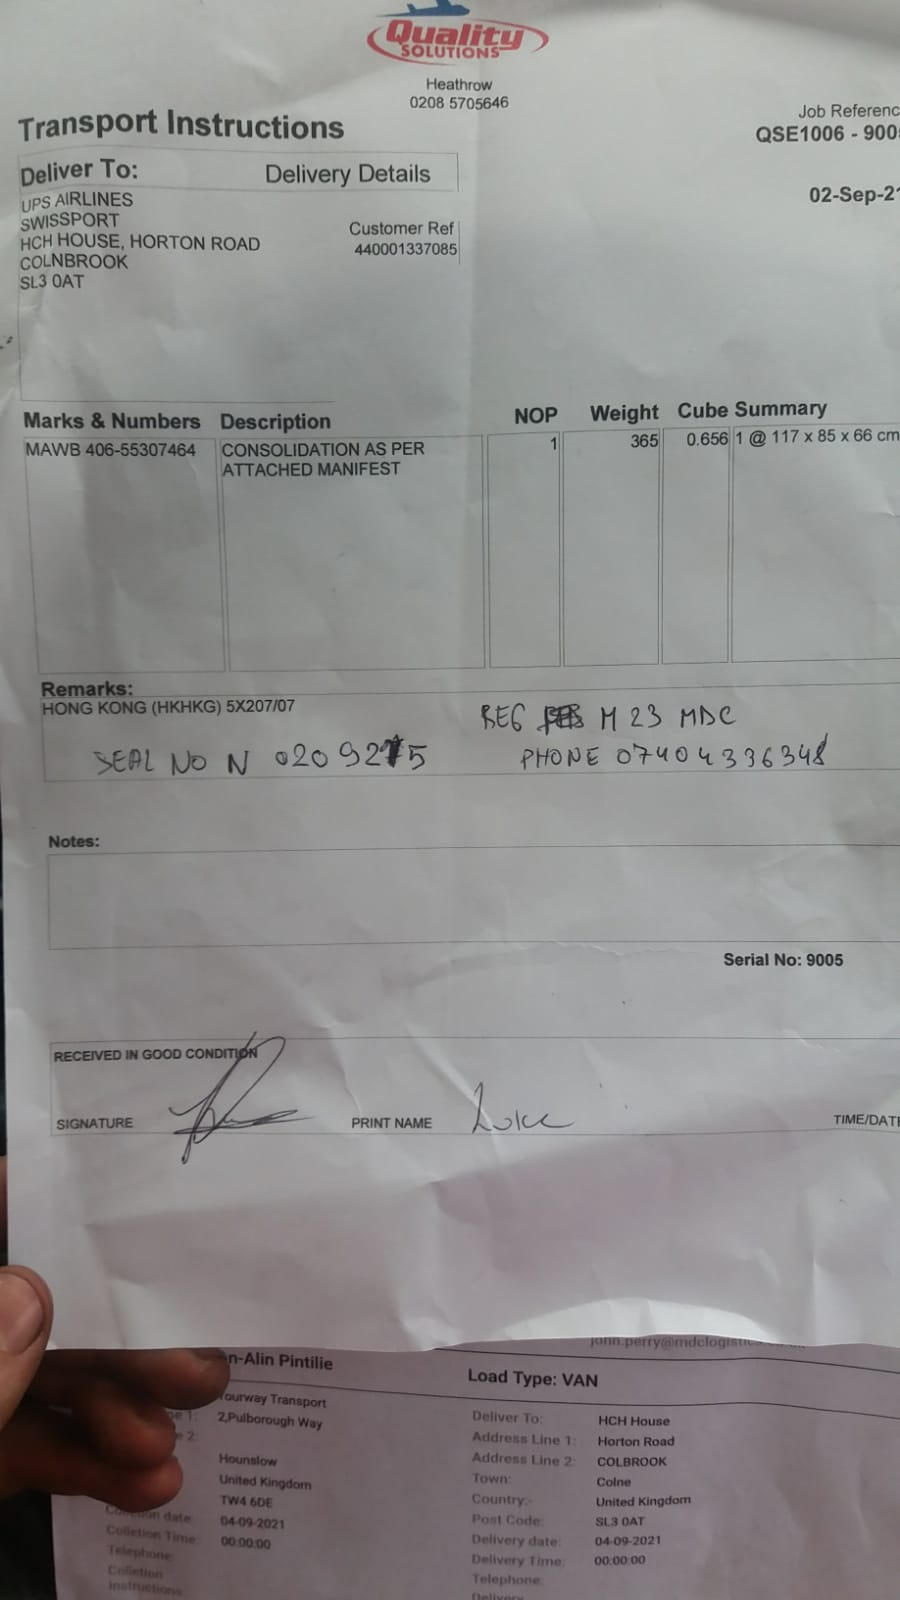 Quality
SOLUTIONS
Heathrow
0208 5705646
Transport Instructions
Job Referenc
QSE1006 - 900
02-Sep-2
Deliver To:
Delivery Details
UPS AIRLINES
SWISSPORT
HCH HOUSE, HORTON ROAD
COLNBROOK
SL3 0AT
Customer Ref
440001337085
Marks & Numbers Description NOP Weight Cube Summary
MAWB 406-55307464 CONSOLIDATION AS PER 1 365 0.656 1 @ 117 x 85 x 66 cm
ATTACHED MANIFEST
Remarks:
HONG KONG (HKHKG) 5X207/07
REG M 23 MDC
SEAL NO N 0209275
PHONE 07404336348
Notes:
Serial No: 9005
RECEIVED IN GOOD CONDITION
SIGNATURE
PRINT NAME Luke
TIME/DATE
john.perry@mdclogistic
n-Alin Pintilie
Load Type: VAN
ourway Transport
2,Pulborough Way
Hounslow
United Kingdom
TW4 6DE
date: 04-09-2021
Colletion Time: 00:00:00
Telephone:
Colletion
Instructions
Deliver To: HCH House
Address Line 1: Horton Road
Address Line 2: COLBROOK
Town: Colne
Country:- United Kingdom
Post Code: SL3 0AT
Delivery date: 04-09-2021
Delivery Time: 00:00:00
Telephone:
Delivery